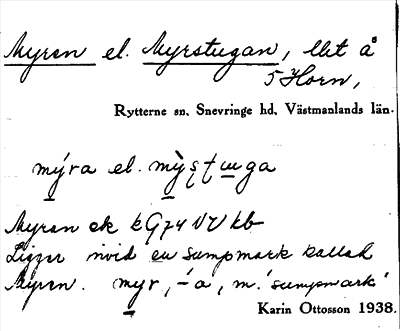 Myren el. Myrstugan, lht å
5 Horn,
Rytterne sn. Snevringe hd. Västmanlands län.
mýra el. mỳʂʈɯga
Myran ek k G74 NV kb
Ligger invid en sumpmark kallad
Myren. myr, -́a, m. 'sumpmark'
Karin Ottosson 1938.